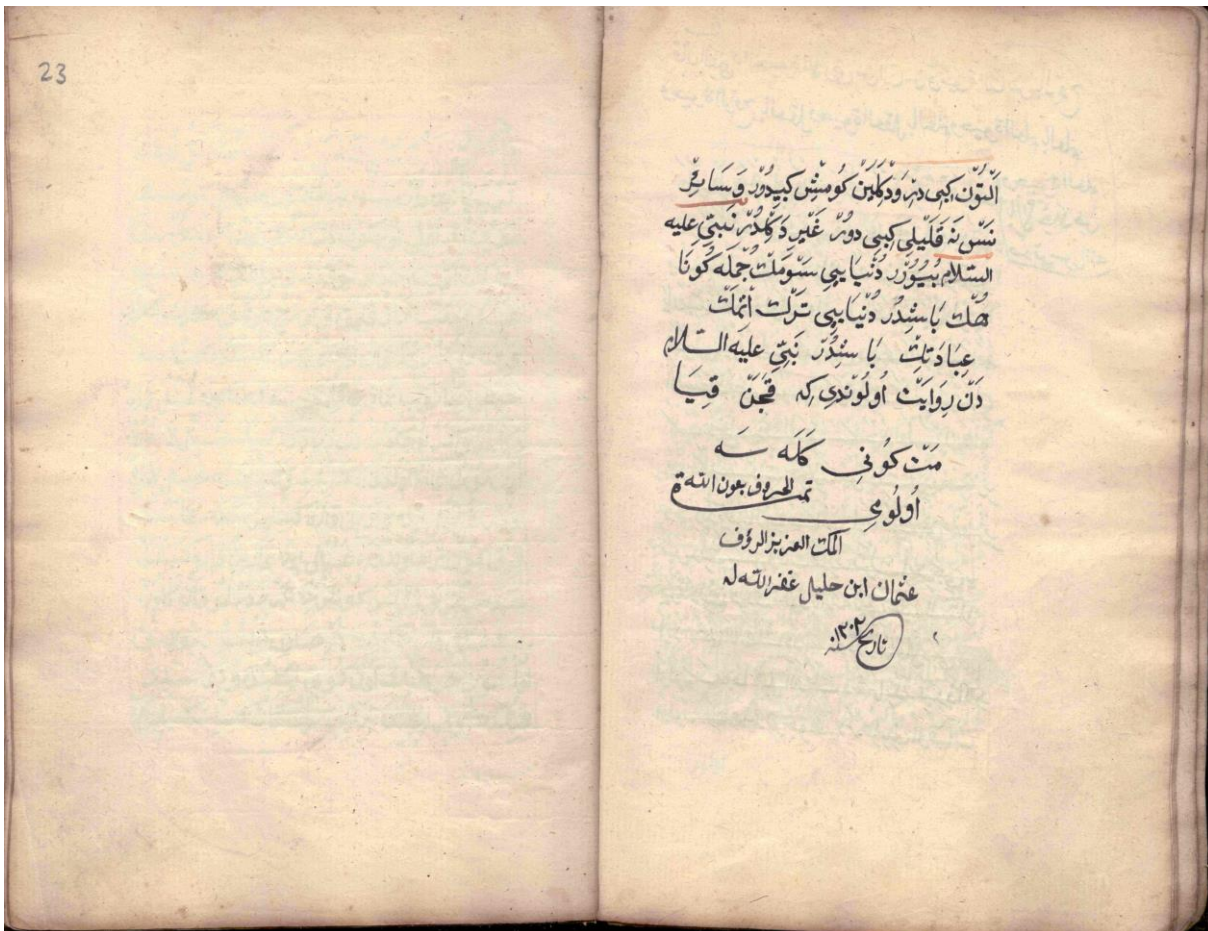 اَلْتُونْ كِبِى دِرْ وَدِكْلَمَنْ كُومُشْ كِبِيدُورْ وَسَائِرْ
نَسْنَه قَلَيْلِى كِبِى دورْ غَيْرِ دَكِلْدُرْ نَبِىّ عليه
السلام بُيُورُرْ دُنْيَايِى سَوْمَكْ جُمْلَه كُونَا
هُكْ بَاشِدُرْ دُنْيَايِى تَرْكْ اَتْمَكْ
عِبَادَتِكْ بَاشِدُرْ نَبِىّ عليه السلام
دَنْ رِوَايَتْ اُولُونْدِى كِه قَچَنْ قِيَا
مَتْ كُونِى كَلَه سَه
اُولُوى تمت الحروف بعون الله
الملك العزيز الرؤف
عثمان ابن خليل غفر الله له
تاريخ سنه ١٣٠٢
23